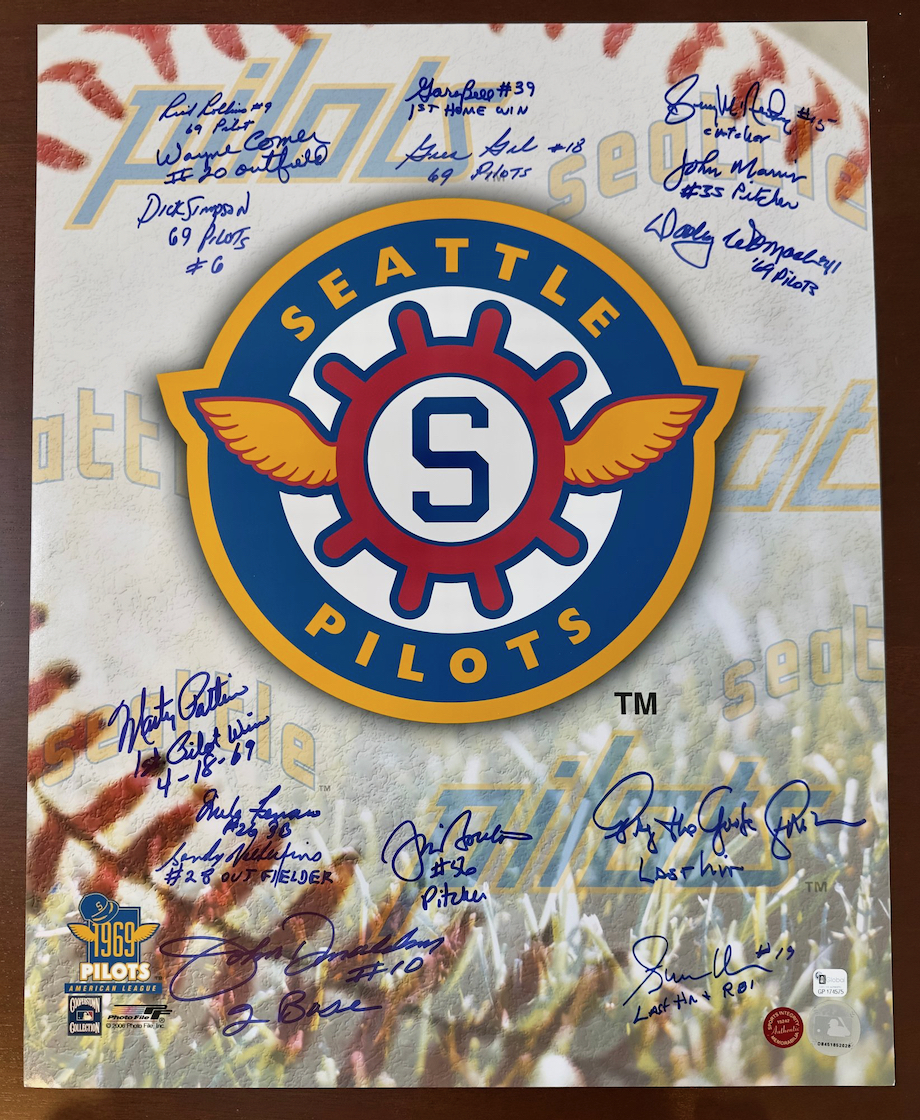 pilots
seattle
Rich Rollins #9
69 Pilot
Wayne Comer
# 20 outfield
Dick Simpson
69 PILOTS
# 6
Gary Bell #39
1ST HOME WIN
#18
69 PILOTS
#15
catcher
John Morris
#35 Pitcher
Dooley Womack
'69 PILOTS
SEATTLE
S
PILOTS
TM
seatt
pilots
seatt
seattle
TM
Marty Pattin
1st Pilot Win
4-18-69
Mike Ferraro
#26 3B
Sandy Valdespino
#28 OUTFIELDER
Jim Bouton
#56
Pitcher
pilots
TM
LAST WIN
John Donaldson
#10
2 Base
#19
LAST HR & RBI
S
1969
PILOTS
AMERICAN LEAGUE
COOPERSTOWN
COLLECTION
PHOTO FILE
© 2006 Photo File, Inc.
GP 174575
SPORTS INTEGRITY
Authentic
MEMORABILIA